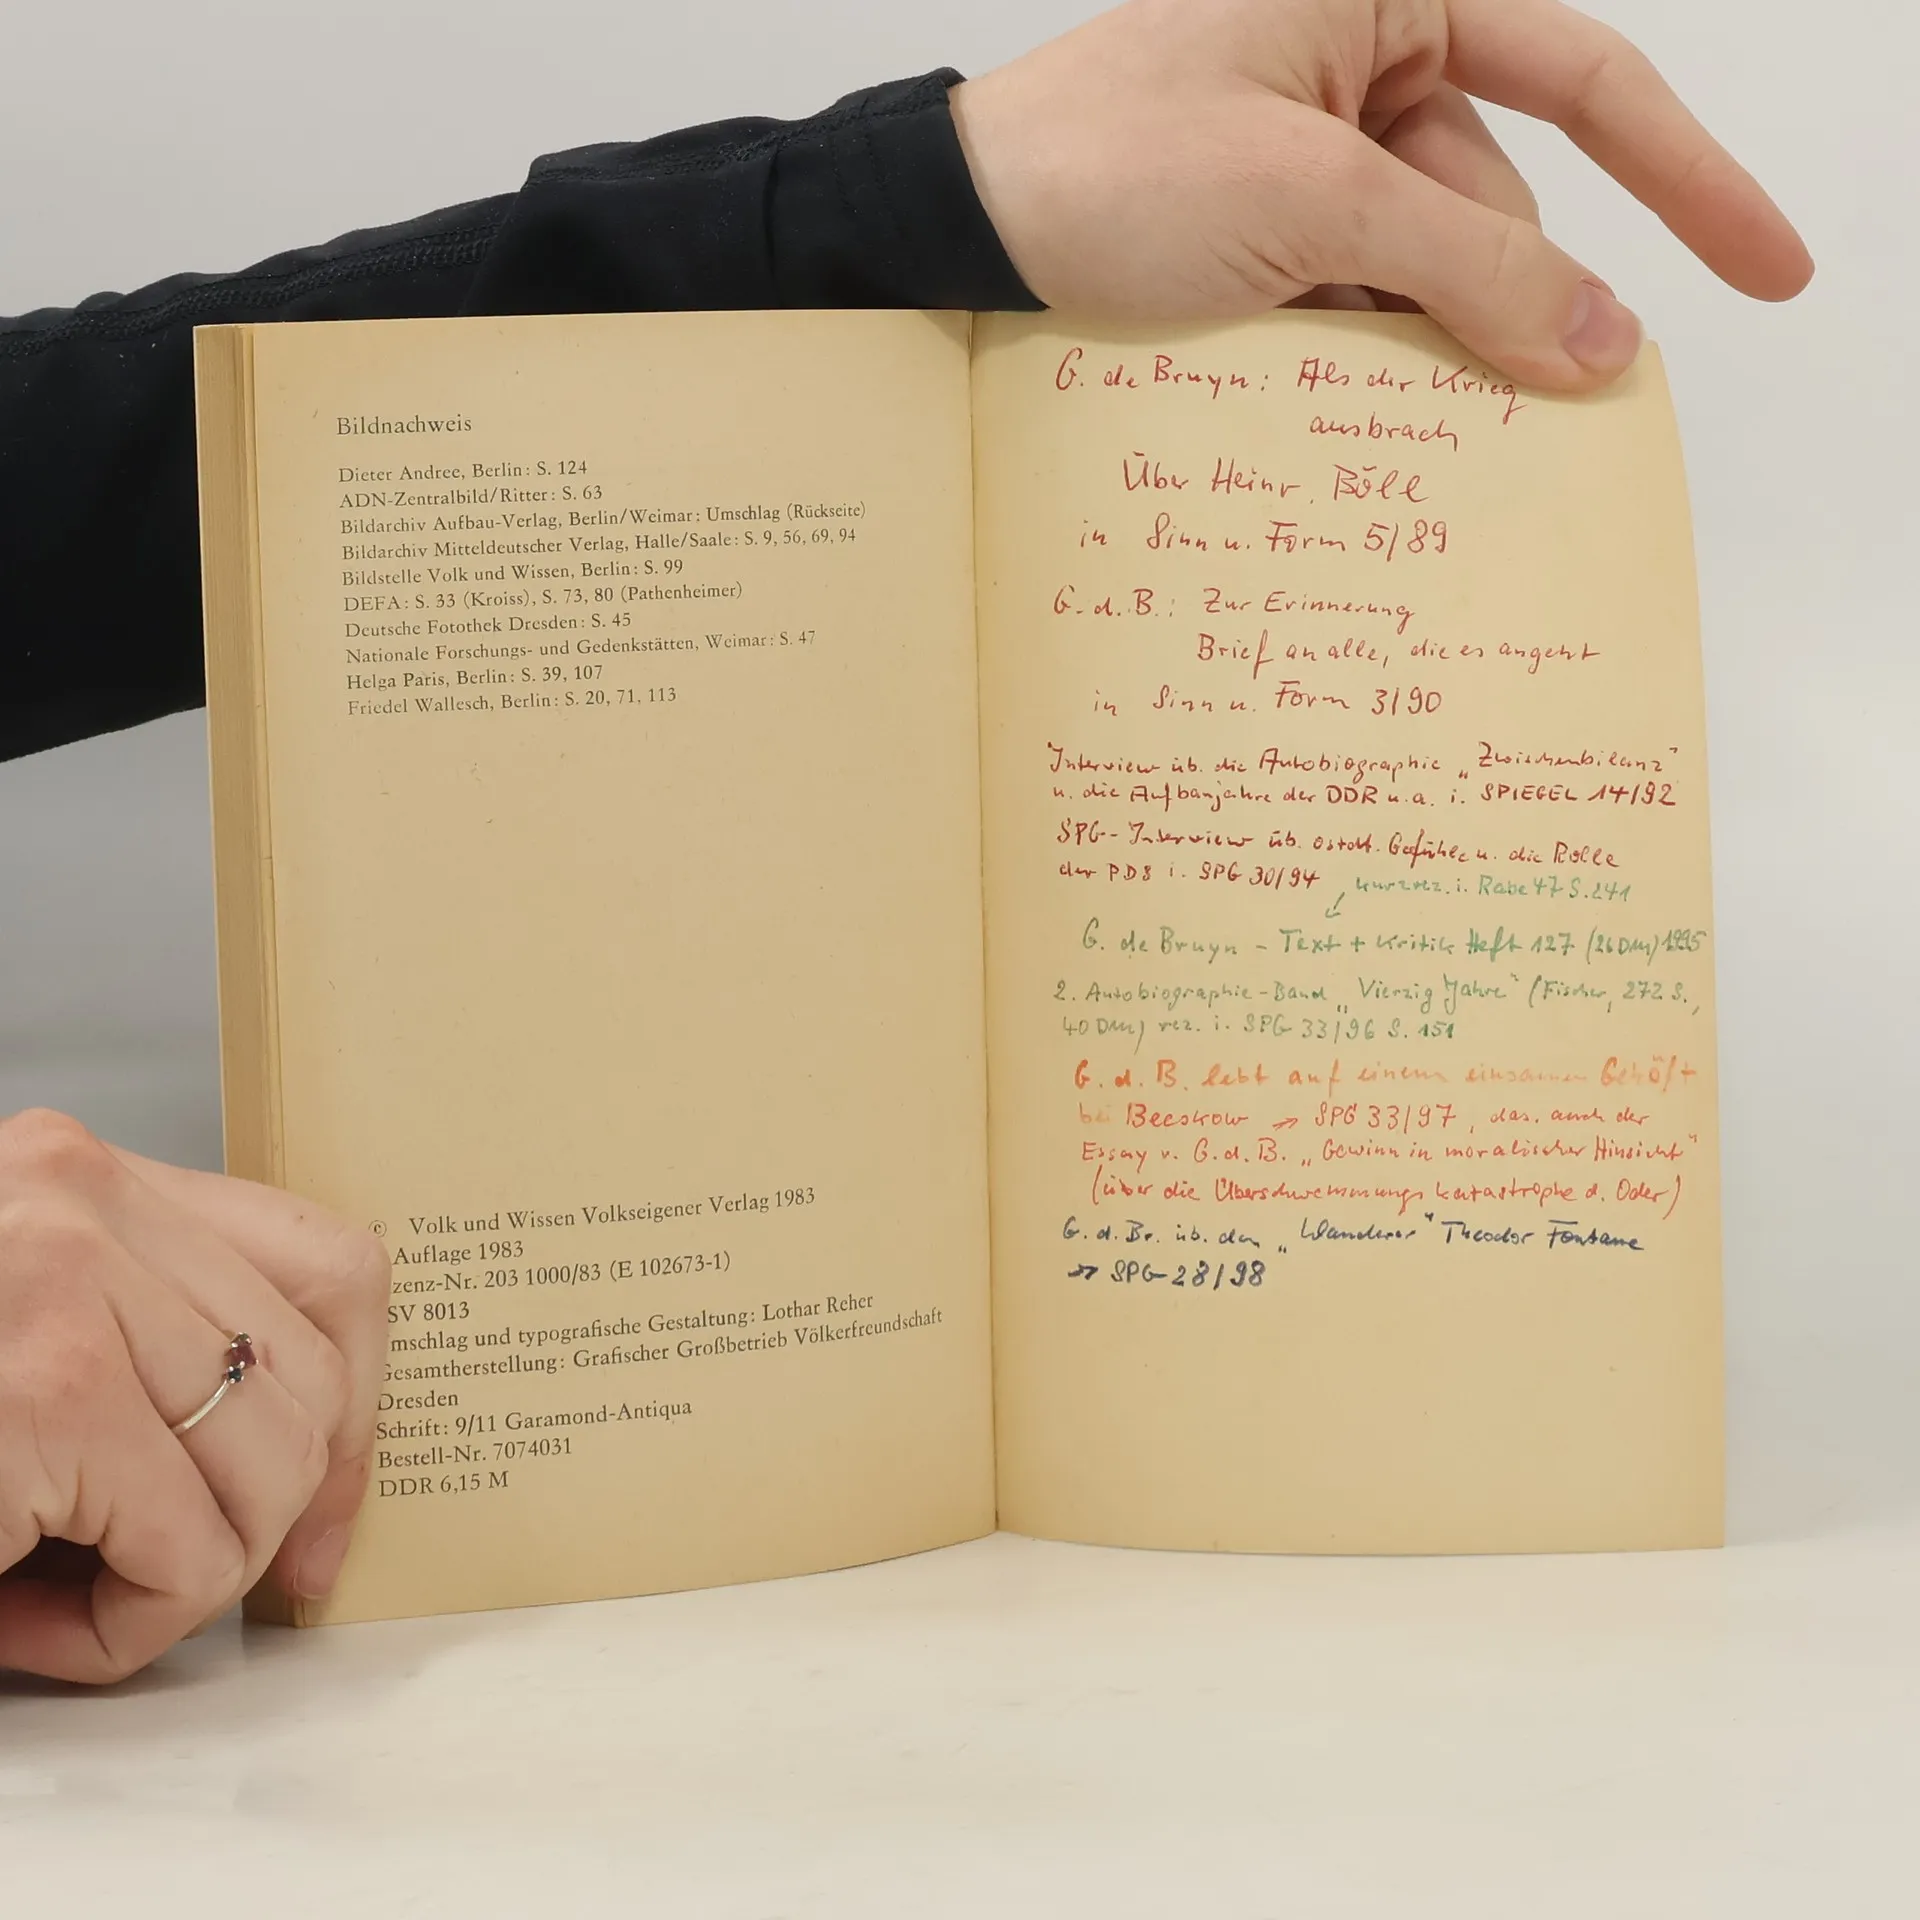 Bildnachweis
Dieter Andree, Berlin: S. 124
ADN-Zentralbild/Ritter: S. 63
Bildarchiv Aufbau-Verlag, Berlin/Weimar: Umschlag (Rückseite)
Bildarchiv Mitteldeutscher Verlag, Halle/Saale: S. 9, 56, 69, 94
Bildstelle Volk und Wissen, Berlin: S. 99
DEFA: S. 33 (Kroiss), S. 73, 80 (Pathenheimer)
Deutsche Fotothek Dresden: S. 45
Nationale Forschungs- und Gedenkstätten, Weimar: S. 47
Helga Paris, Berlin: S. 39, 107
Friedel Wallesch, Berlin: S. 20, 71, 113
© Volk und Wissen Volkseigener Verlag 1983
Auflage 1983
zenz-Nr. 203 1000/83 (E 102673-1)
SV 8013
mschlag und typografische Gestaltung: Lothar Reher
Gesamtherstellung: Grafischer Großbetrieb Völkerfreundschaft
Dresden
Schrift: 9/11 Garamond-Antiqua
Bestell-Nr. 7074031
DDR 6,15 M
G. de Bruyn: Als der Krieg
ausbrach
Über Heinr. Böll
in Sinn u. Form 5/89
G. d. B.: Zur Erinnerung
Brief an alle, die es angeht
in Sinn u. Form 3/90
Interview üb. die Autobiographie „Zwischenbilanz"
u. die Aufbaujahre der DDR u. a. i. SPIEGEL 14/92
SPG-Interview üb. ostdt. Gefühle u. die Rolle
der PDS i. SPG 30/94
kurzrez. i. Rabe 47 S. 241
G. de Bruyn – Text + Kritik Heft 127 (26 DM) 1995
2. Autobiographie-Band „Vierzig Jahre" (Fischer, 272 S.,
40 DM) rez. i. SPG 33/96 S. 151
G. d. B. lebt auf einem einsamen Gehöft
bei Beeskow → SPG 33/97, das. auch der
Essay v. G. d. B. „Gewinn in moralischer Hinsicht"
(über die Überschwemmungskatastrophe d. Oder)
G. d. Br. üb. den „Wanderer" Theodor Fontane
→ SPG 28/98